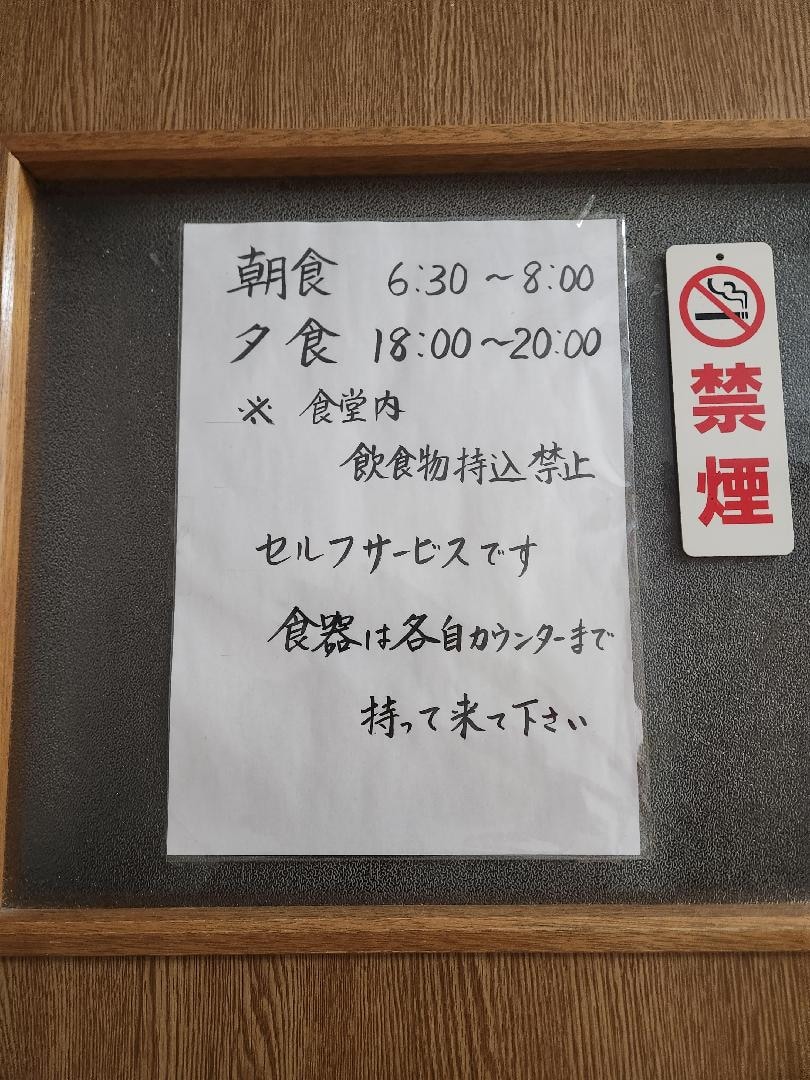 朝食 6:30 ~ 8:00
夕食 18:00~20:00
※ 食堂内
飲食物持込禁止
セルフサービスです
食器は各自カウンターまで
持って来て下さい
禁煙